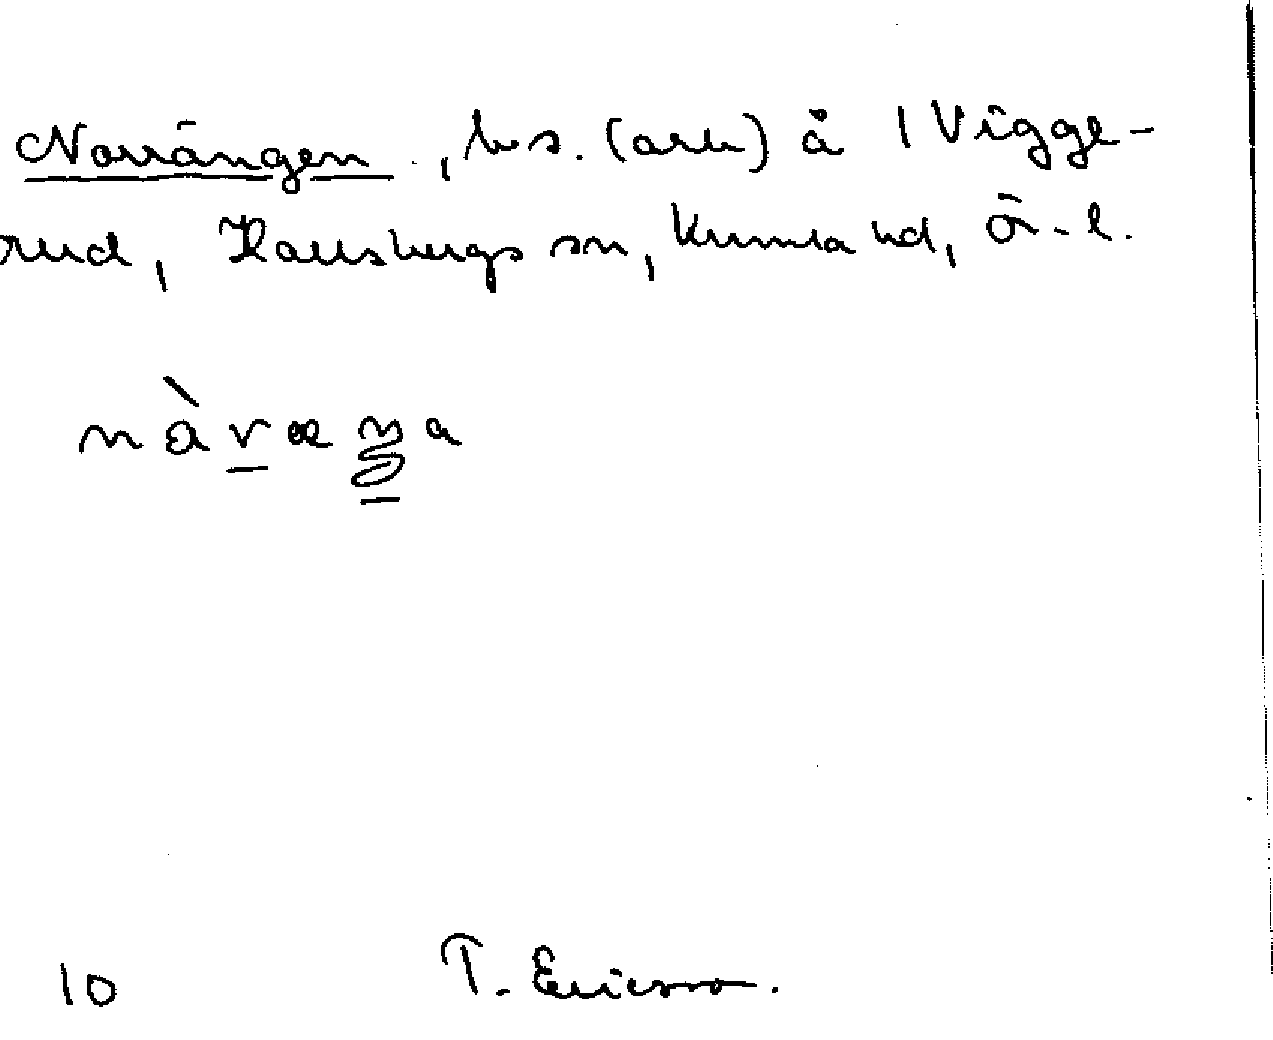 Norrängen, bs. (ark) å 1 Vigge-
rud, Hallsbergs sn, Kumla hd, Ö-l.
nàvæŋa
10 T. Ericsson.